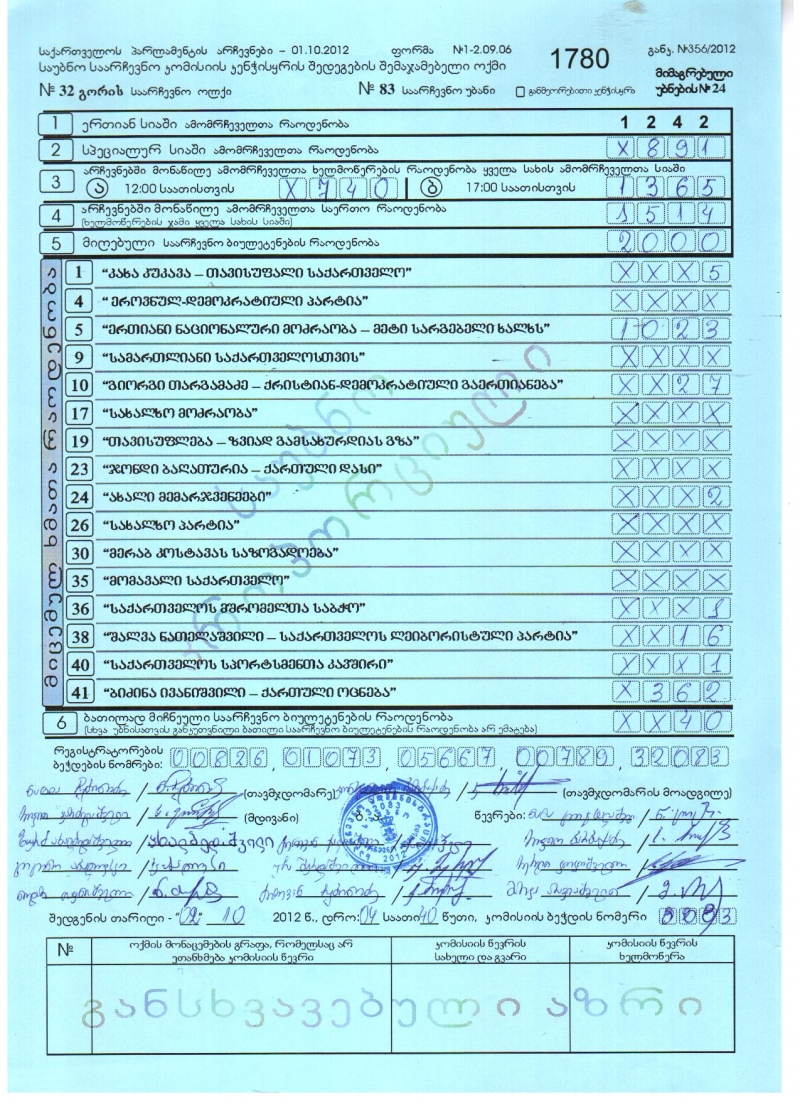 საქართველოს პარლამენტის არჩევნები – 01.10.2012 ფორმა №1-2.09.06 1780 განკ. №356/2012
საუბნო საარჩევნო კომისიის კენჭისყრის შედეგების შემაჯამებელი ოქმი მიმაგრებული
№ 32 გორის საარჩევნო ოლქი № 83 საარჩევნო უბანი განმეორებითი კენჭისყრა უბნების № 24
1 ერთიან სიაში ამომრჩეველთა რაოდენობა 1 2 4 2
2 სპეციალურ სიაში ამომრჩეველთა რაოდენობა X 8 9 1
3 არჩევნებში მონაწილე ამომრჩეველთა ხელმოწერების რაოდენობა ყველა სახის ამომრჩეველთა სიაში
ა 12:00 საათისთვის X 7 4 0 ბ 17:00 საათისთვის 1 3 6 5
4 არჩევნებში მონაწილე ამომრჩეველთა საერთო რაოდენობა 1 5 1 4
(ხელმოწერების ჯამი ყველა სახის სიაში)
5 მიღებული საარჩევნო ბიულეტენების რაოდენობა 2 0 0 0
მიცემულ ხმათა რაოდენობა
1 “კახა კუკავა – თავისუფალი საქართველო” X X X 5
4 “ ეროვნულ-დემოკრატიული პარტია” X X X X
5 “ერთიანი ნაციონალური მოძრაობა – მეტი სარგებელი ხალხს” 1 0 2 3
9 “სამართლიანი საქართველოსთვის” X X X X
10 “გიორგი თარგამაძე – ქრისტიან-დემოკრატიული გაერთიანება” X X 2 7
17 “სახალხო მოძრაობა” X X X X
19 “თავისუფლება – ზვიად გამსახურდიას გზა” X X X X
23 “ჯონდი ბაღათურია – ქართული დასი” X X X X
24 “ახალი მემარჯვენეები” X X X 2
26 “სახალხო პარტია” X X X X
30 “მერაბ კოსტავას საზოგადოება” X X X X
35 “მომავალი საქართველო” X X X X
36 “საქართველოს მშრომელთა საბჭო” X X X 1
38 “შალვა ნათელაშვილი – საქართველოს ლეიბორისტული პარტია” X X 1 6
40 “საქართველოს სპორტსმენთა კავშირი” X X X 1
41 “ბიძინა ივანიშვილი – ქართული ოცნება” X 3 6 2
საუბნო
პროპორციული
6 ბათილად მიჩნეული საარჩევნო ბიულეტენების რაოდენობა X X 4 0
(სხვა უბნისათვის განკუთვნილი ბათილი საარჩევნო ბიულეტენების რაოდენობა არ ემატება)
რეგისტრატორების
ბეჭდების ნომრები: 00826, 01073, 05667, 00789, 32083
(თავმჯდომარე) (თავმჯდომარის მოადგილე)
(მდივანი) ბ.ა. წევრები:
შედგენის თარიღი - “02” 10 2012 წ., დრო: 04 საათი 40 წუთი, კომისიის ბეჭდის ნომერი
№ ოქმის მონაცემების გრაფა, რომელსაც არ ეთანხმება კომისიის წევრი კომისიის წევრის სახელი და გვარი კომისიის წევრის ხელმოწერა
განსხვავებული აზრი